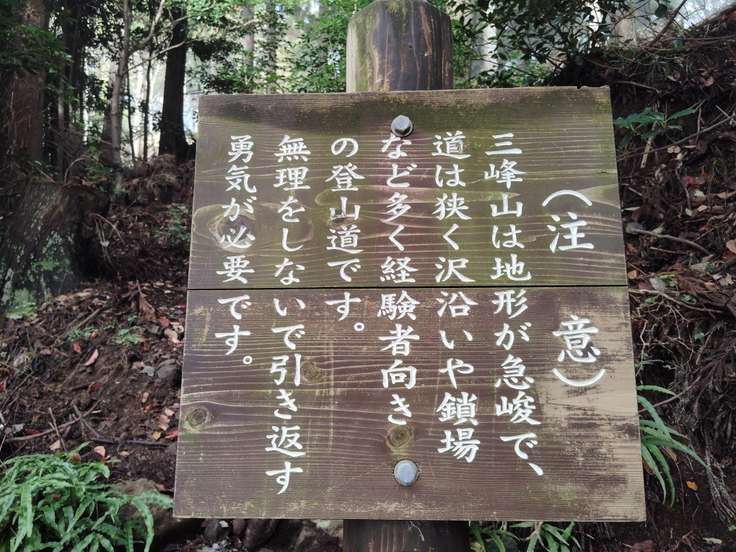 （注　意）
三峰山は地形が急峻で、
道は狭く沢沿いや鎖場
など多く経験者向き
の登山道です。
無理をしないで引き返す
勇気が必要です。